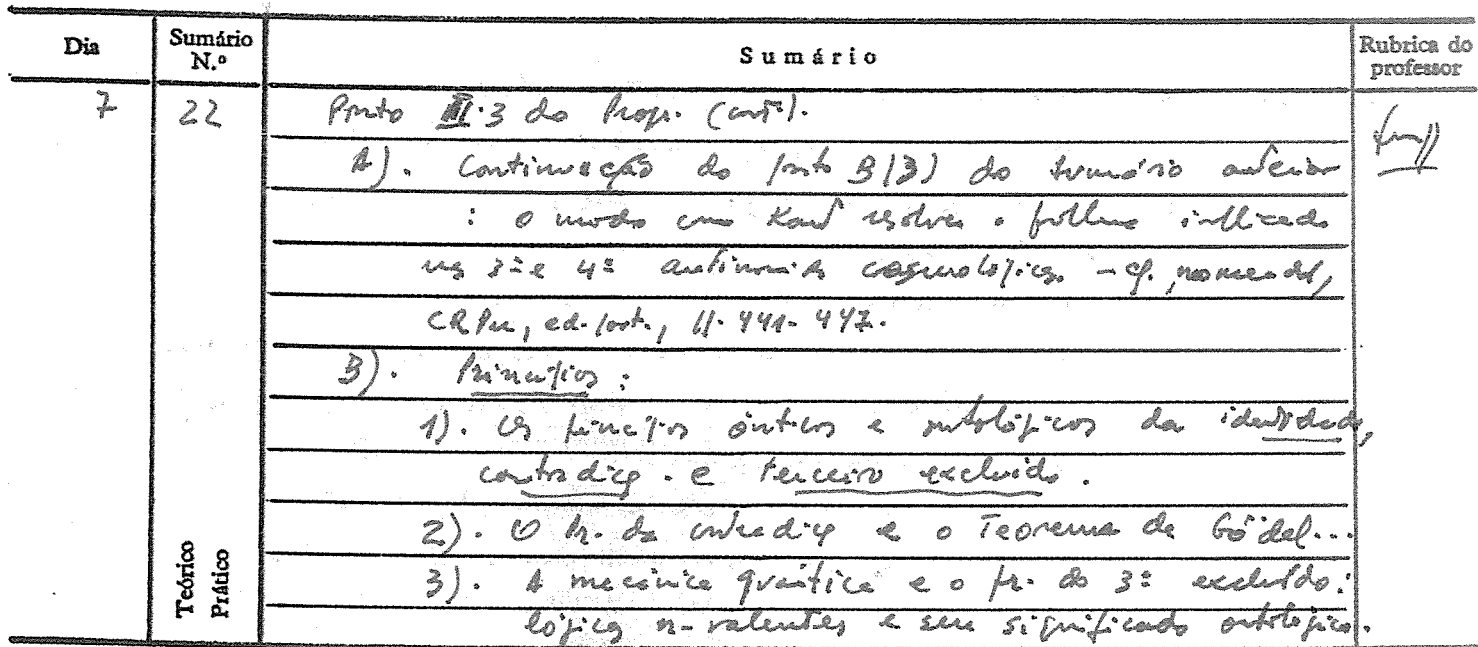 Dia
Sumário N.º
Sumário
Rubrica do professor
7
22
Ponto III.3 do Progr. (contª).
A). Continuação do ponto B(3) do sumário anterior
: o modo como Kant resolve o problema implicado
nas 3ª e 4ª antinomias cosmológicas - cf.,
CRPu, ed. port., pp. 441-447.
B). Princípios:
1). Os princípios ônticos e ontológicos da identidade,
contradiç. e terceiro excluído.
2). O Pr. da contradiç e o Teorema de Gödel...
3). A mecânica quântica e o pr. do 3º excluído:
lógicas n-valentes e seu significado ontológico.
Teórico
Prático